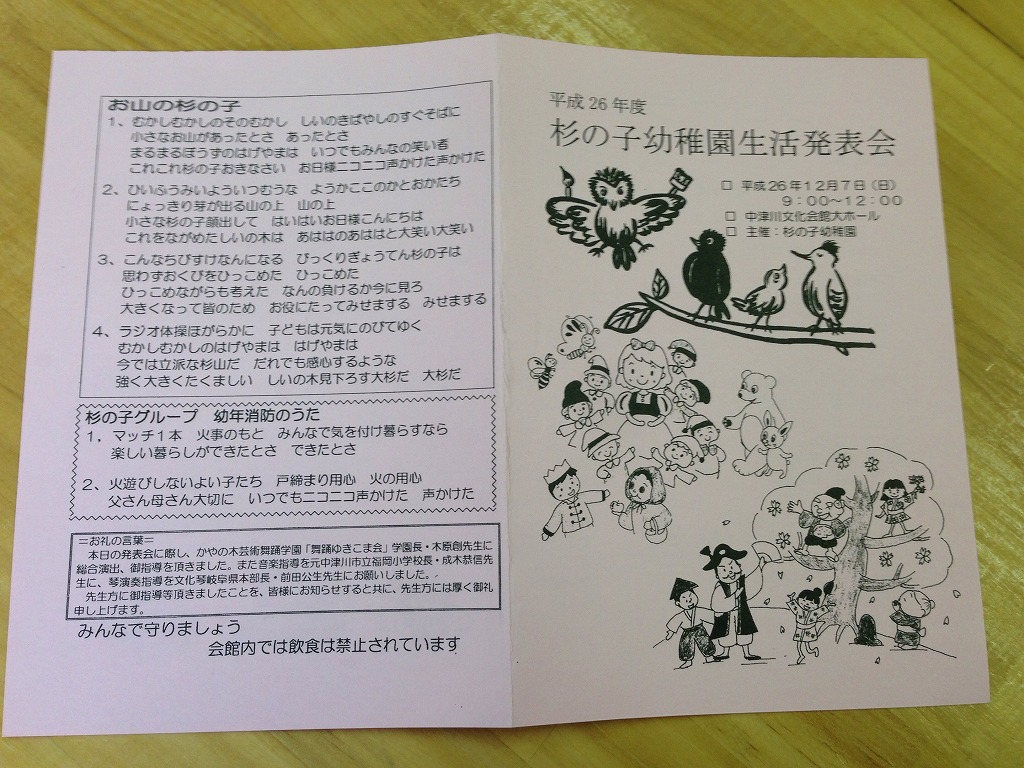 お山の杉の子
1、むかしむかしのそのむかし　しいのきばやしのすぐそばに
小さなお山があったとさ　あったとさ
まるまるぼうずのはげやまは　いつでもみんなの笑い者
これこれ杉の子おきなさい　お日様ニコニコ声かけた声かけた
2、ひいふうみいよういつむうな　ようかここのかとおかたち
にょっきり芽が出る山の上　山の上
小さな杉の子顔出して　はいはいお日様こんにちは
これをながめたしいの木は　あははのあははと大笑い大笑い
3、こんなちびすけなんになる　びっくりぎょうてん杉の子は
思わずおくびをひっこめた　ひっこめた
ひっこめながらも考えた　なんの負けるか今に見ろ
大きくなって皆のため　お役にたってみせまする　みせまする
4、ラジオ体操ほがらかに　子どもは元気にのびてゆく
むかしむかしのはげやまは　はげやまは
今では立派な杉山だ　だれでも感心するような
強く大きくたくましい　しいの木見下ろす大杉だ　大杉だ
杉の子グループ　幼年消防のうた
1，マッチ1本　火事のもと　みんなで気を付け暮らすなら
楽しい暮らしができたとさ　できたとさ
2、火遊びしないよい子たち　戸締まり用心　火の用心
父さん母さん大切に　いつでもニコニコ声かけた　声かけた
＝お礼の言葉＝
本日の発表会に際し、かやの木芸術舞踊学園「舞踊ゆきこま会」学園長・木原創先生に
総合演出、御指導を頂きました。また音楽指導を元中津川市立福岡小学校長・成木恭信先
生に、琴演奏指導を文化琴岐阜県本部長・前田公生先生にお願いしました。
先生方に御指導等頂きましたことを、皆様にお知らせすると共に、先生方には厚く御礼
申し上げます。
みんなで守りましょう
会館内では飲食は禁止されています
平成26年度
杉の子幼稚園生活発表会
□ 平成26年12月7日（日）
9：00～12：00
□ 中津川文化会館大ホール
□ 主催：杉の子幼稚園